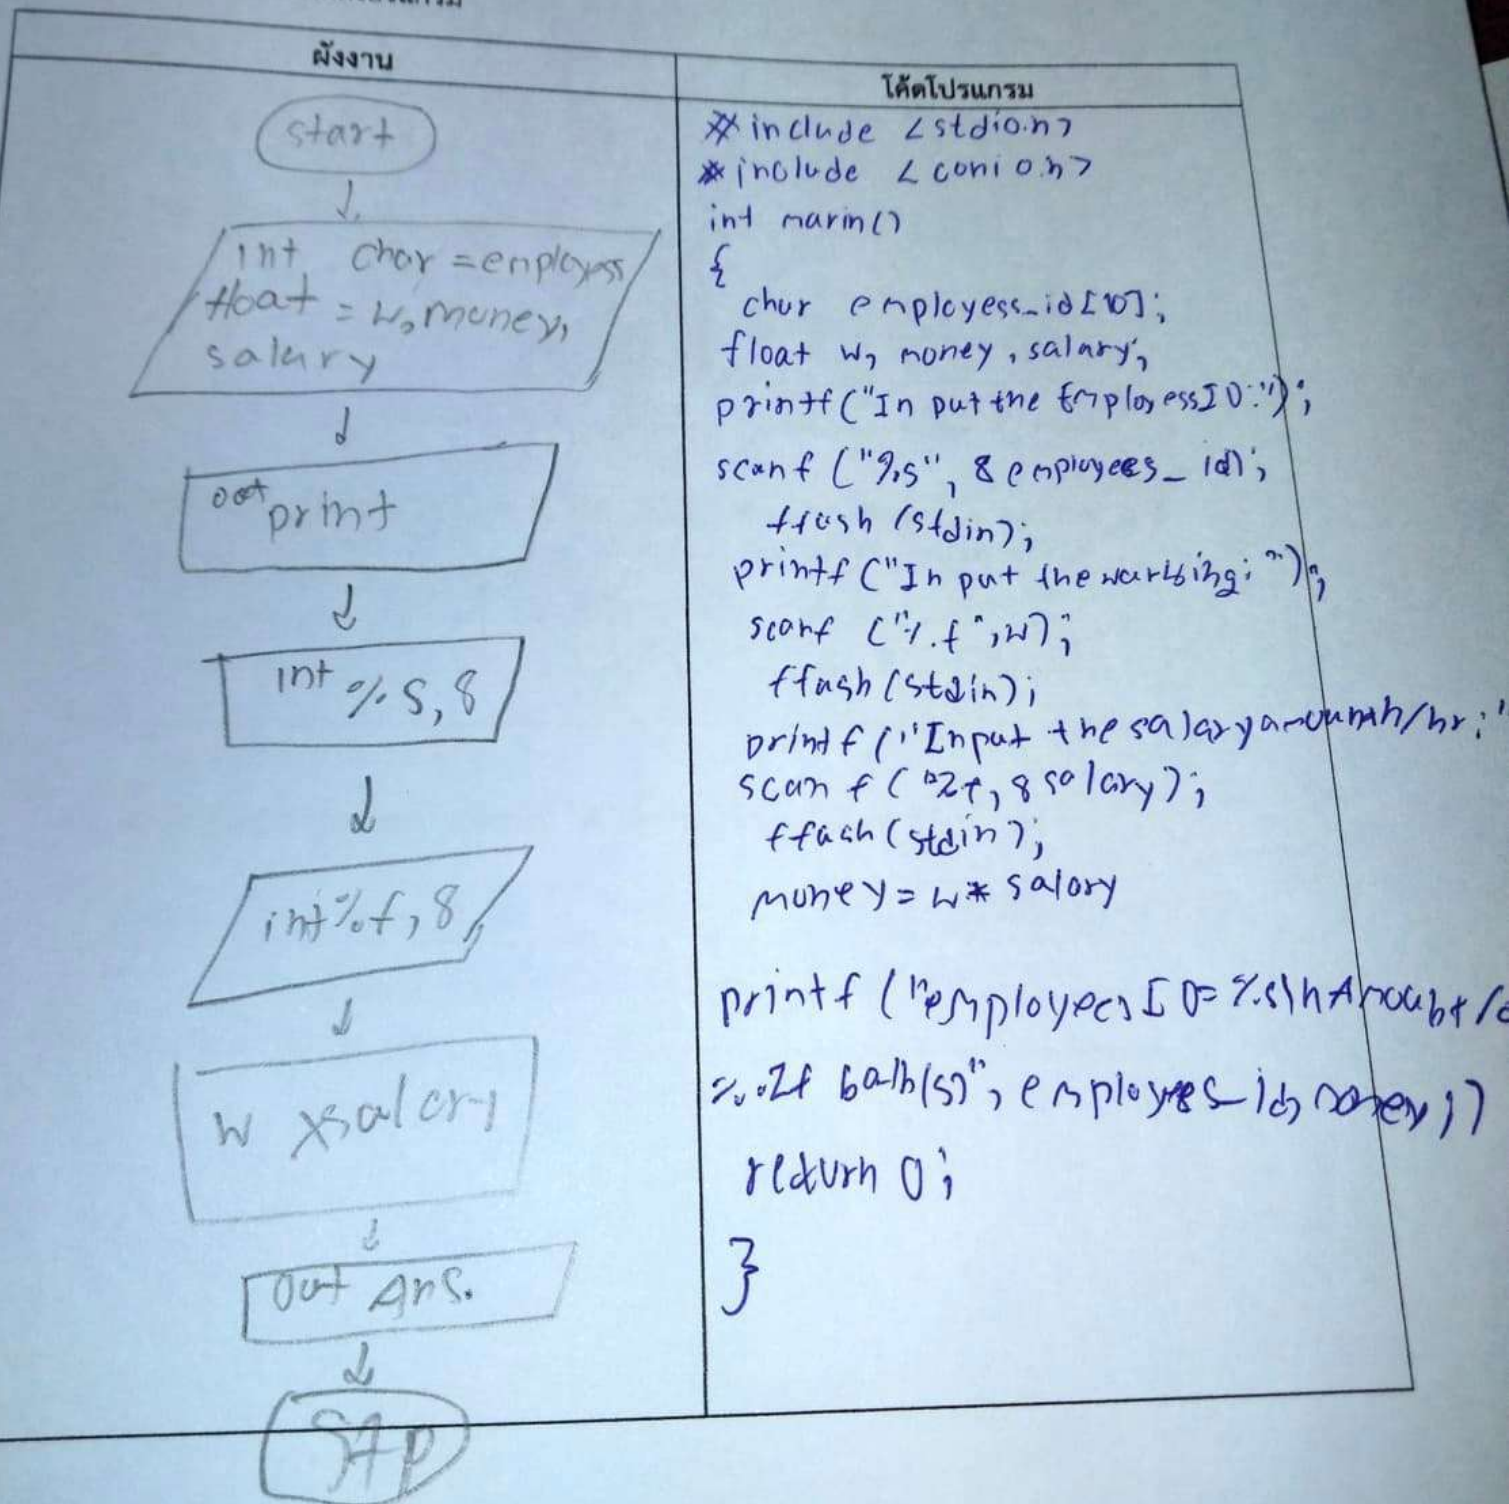 ผังงาน
start
int char = employess
float = w, money,
salary
out print
int %s, 8
int %f, 8
w x salary
out Ans.
Stp
โค้ดโปรแกรม
#include <stdio.h>
#include <conio.h>
int marin()
{
char employess_id[10];
float w, money, salary;
printf("In put the EmployessID:");
scanf ("%s", & employees_id);
ffush (stdin);
printf("In put the warking: ");
scanf ("%f", w);
ffush (stdin);
printf ("Input the salary amounth/hr:"
scanf ("%f, & salary);
ffush (stdin);
money = w * salary
printf ("employees ID= %s\n Amoubt/
%.2f bath(s)", employees_id, money);
return 0;
}